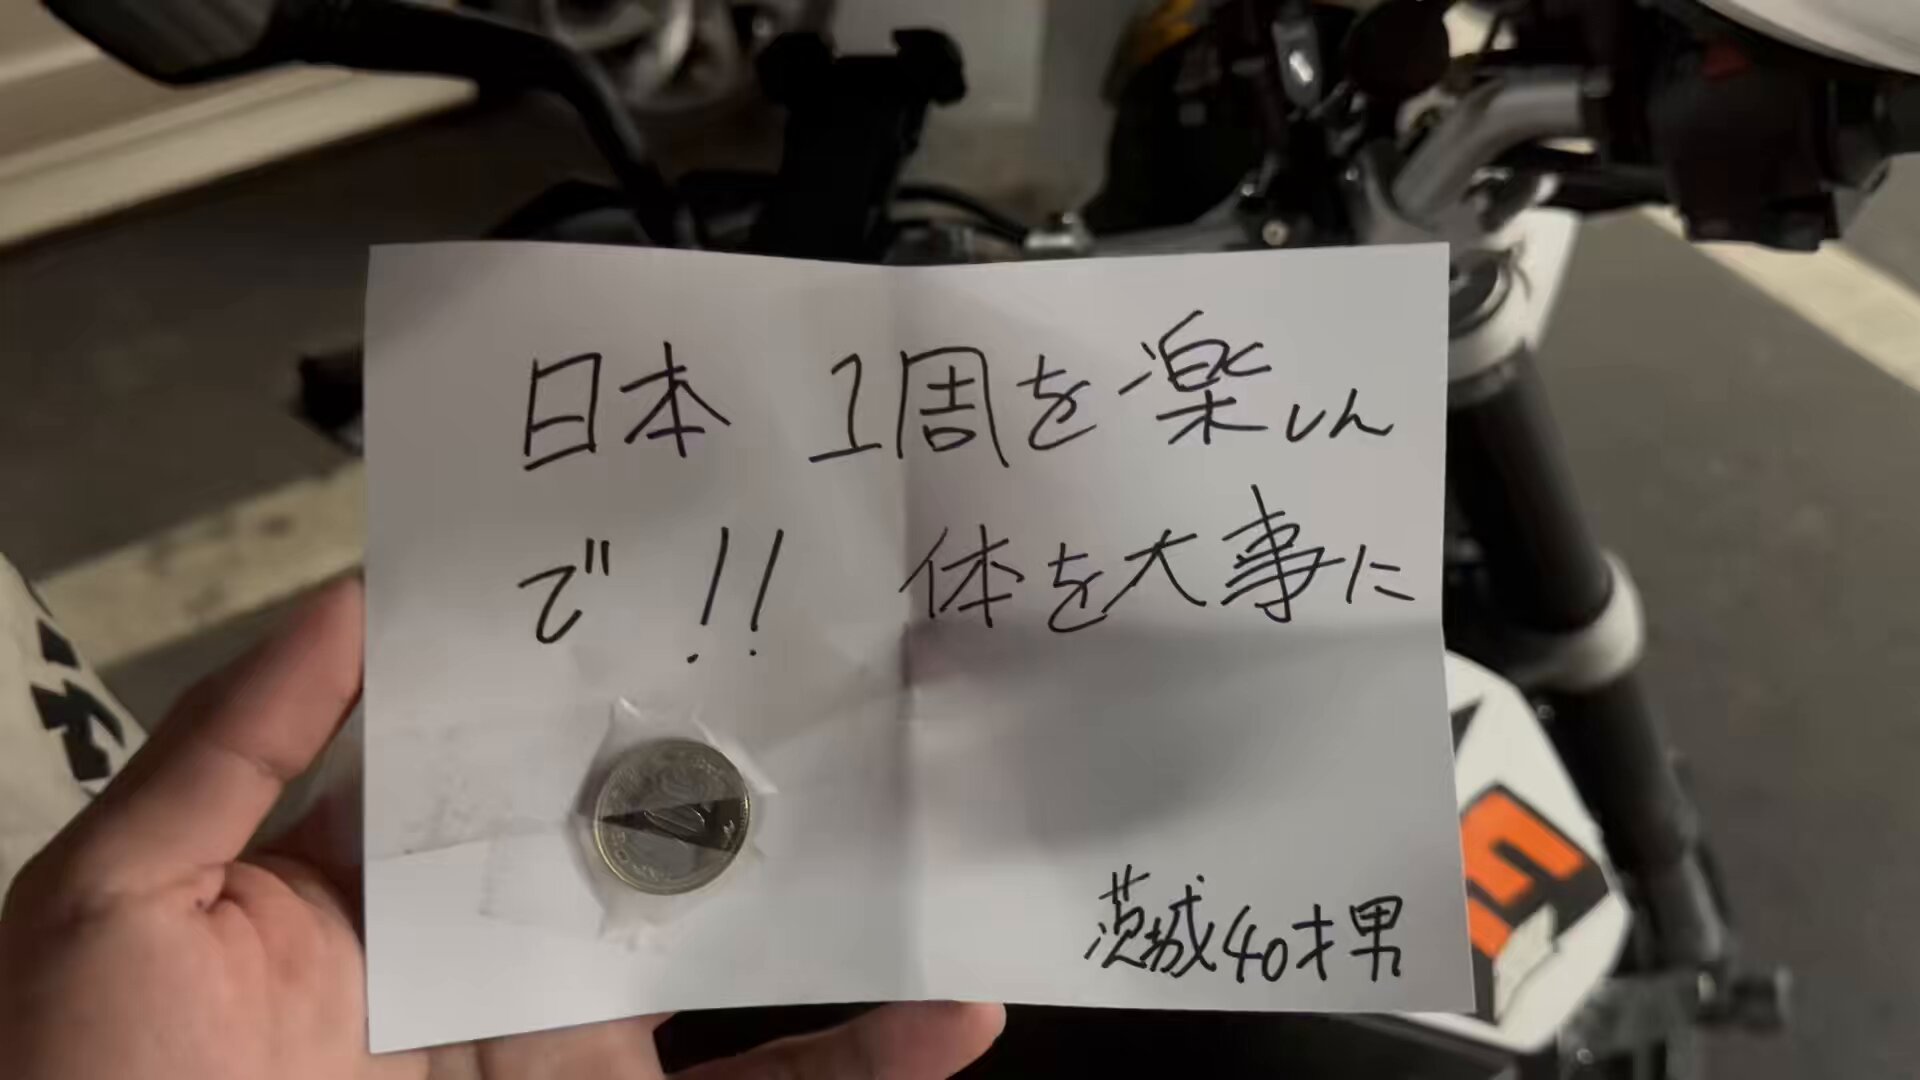 日本 1周を楽しん
で!! 体を大事に
茨城40才男